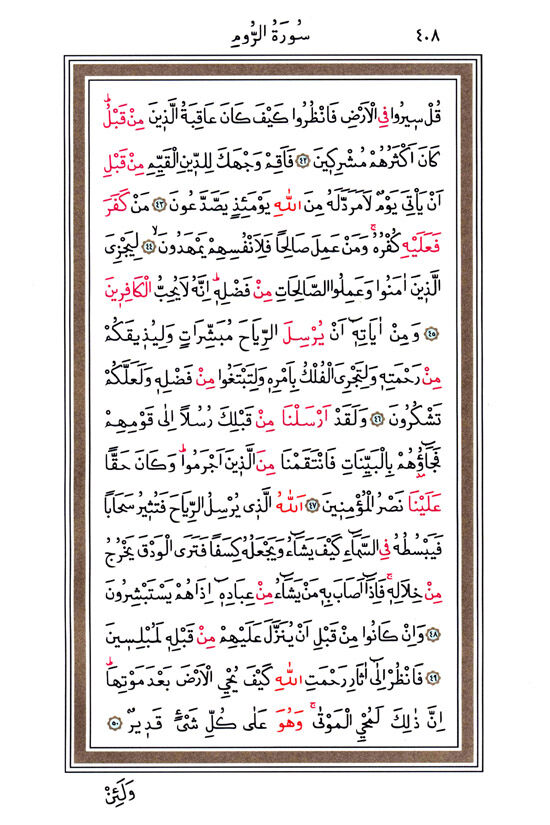 سُورَةُ الرُّومِ ٤٠٨
قُلْ سِيرُوا فِي الْاَرْضِ فَانْظُرُوا كَيْفَ كَانَ عَاقِبَةُ الَّذِينَ مِنْ قَبْلُۜ
كَانَ اَكْثَرُهُمْ مُشْرِكِينَ ﴿٤٢﴾ فَاَقِمْ وَجْهَكَ لِلدِّينِ الْقَيِّمِ مِنْ قَبْلِ
اَنْ يَأْتِيَ يَوْمٌ لَا مَرَدَّ لَهُ مِنَ اللّٰهِ يَوْمَئِذٍ يَصَّدَّعُونَ ﴿٤٣﴾ مَنْ كَفَرَ
فَعَلَيْهِ كُفْرُهُۚ وَمَنْ عَمِلَ صَالِحًا فَلِاَنْفُسِهِمْ يَمْهَدُونَۙ ﴿٤٤﴾ لِيَجْزِيَ
الَّذِينَ اٰمَنُوا وَعَمِلُوا الصَّالِحَاتِ مِنْ فَضْلِهِۜ اِنَّهُ لَا يُحِبُّ الْكَافِرِينَ
﴿٤٥﴾ وَمِنْ اٰيَاتِهِٓ اَنْ يُرْسِلَ الرِّيَاحَ مُبَشِّرَاتٍ وَلِيُذِيقَكُمْ
مِنْ رَحْمَتِهِ وَلِتَجْرِيَ الْفُلْكُ بِاَمْرِهِ وَلِتَبْتَغُوا مِنْ فَضْلِهِ وَلَعَلَّكُمْ
تَشْكُرُونَ ﴿٤٦﴾ وَلَقَدْ اَرْسَلْنَا مِنْ قَبْلِكَ رُسُلًا اِلٰى قَوْمِهِمْ
فَجَٓاؤُ۫هُمْ بِالْبَيِّنَاتِ فَانْتَقَمْنَا مِنَ الَّذِينَ اَجْرَمُواۜ وَكَانَ حَقًّا
عَلَيْنَا نَصْرُ الْمُؤْمِنِينَ ﴿٤٧﴾ اَللّٰهُ الَّذِي يُرْسِلُ الرِّيَاحَ فَتُثِيرُ سَحَابًا
فَيَبْسُطُهُ فِي السَّمَٓاءِ كَيْفَ يَشَٓاءُ وَيَجْعَلُهُ كِسَفًا فَتَرَى الْوَدْقَ يَخْرُجُ
مِنْ خِلَالِهِۚ فَاِذَٓا اَصَابَ بِهِ مَنْ يَشَٓاءُ مِنْ عِبَادِهِٓ اِذَا هُمْ يَسْتَبْشِرُونَ
﴿٤٨﴾ وَاِنْ كَانُوا مِنْ قَبْلِ اَنْ يُنَزَّلَ عَلَيْهِمْ مِنْ قَبْلِهِ لَمُبْلِسِينَ
﴿٤٩﴾ فَانْظُرْ اِلٰٓى اٰثَارِ رَحْمَتِ اللّٰهِ كَيْفَ يُحْيِ الْاَرْضَ بَعْدَ مَوْتِهَاۜ
اِنَّ ذٰلِكَ لَمُحْيِ الْمَوْتٰىۚ وَهُوَ عَلٰى كُلِّ شَيْءٍ قَدِيرٌ ﴿٥٠﴾
وَلَئِنْ